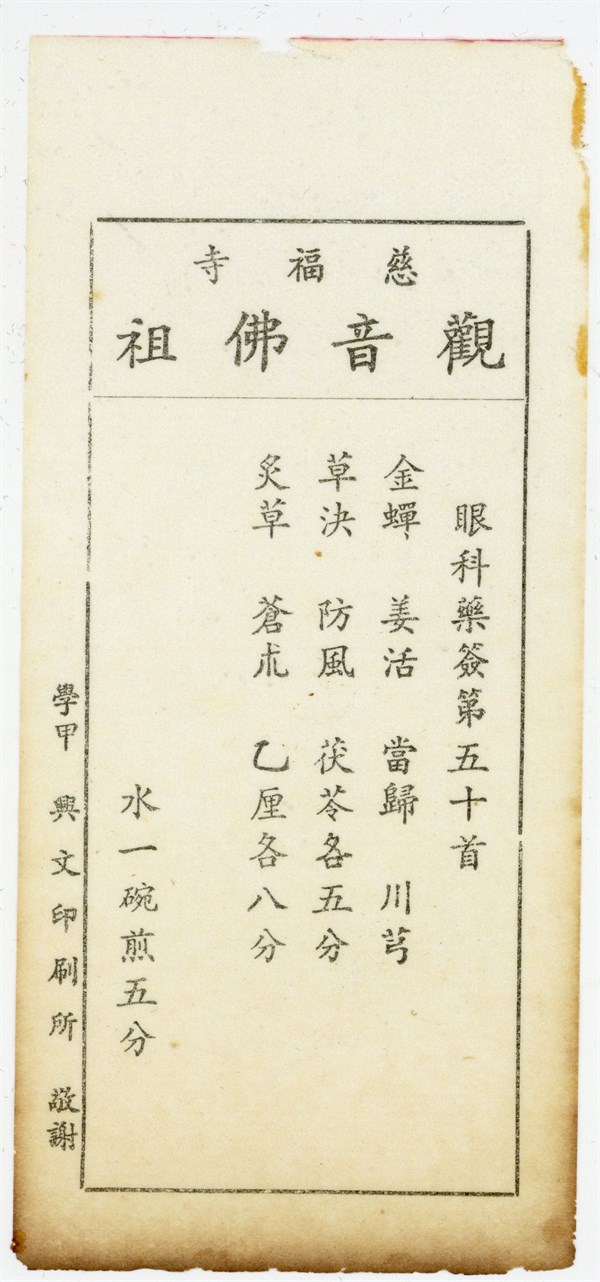 慈福寺
觀音佛祖
眼科藥簽第五十首
金蟬 姜活 當歸 川芎
草決 防風 茯苓各五分
炙草 蒼朮 乙厘各八分
水一碗煎五分
學甲 興文印刷所 敬謝